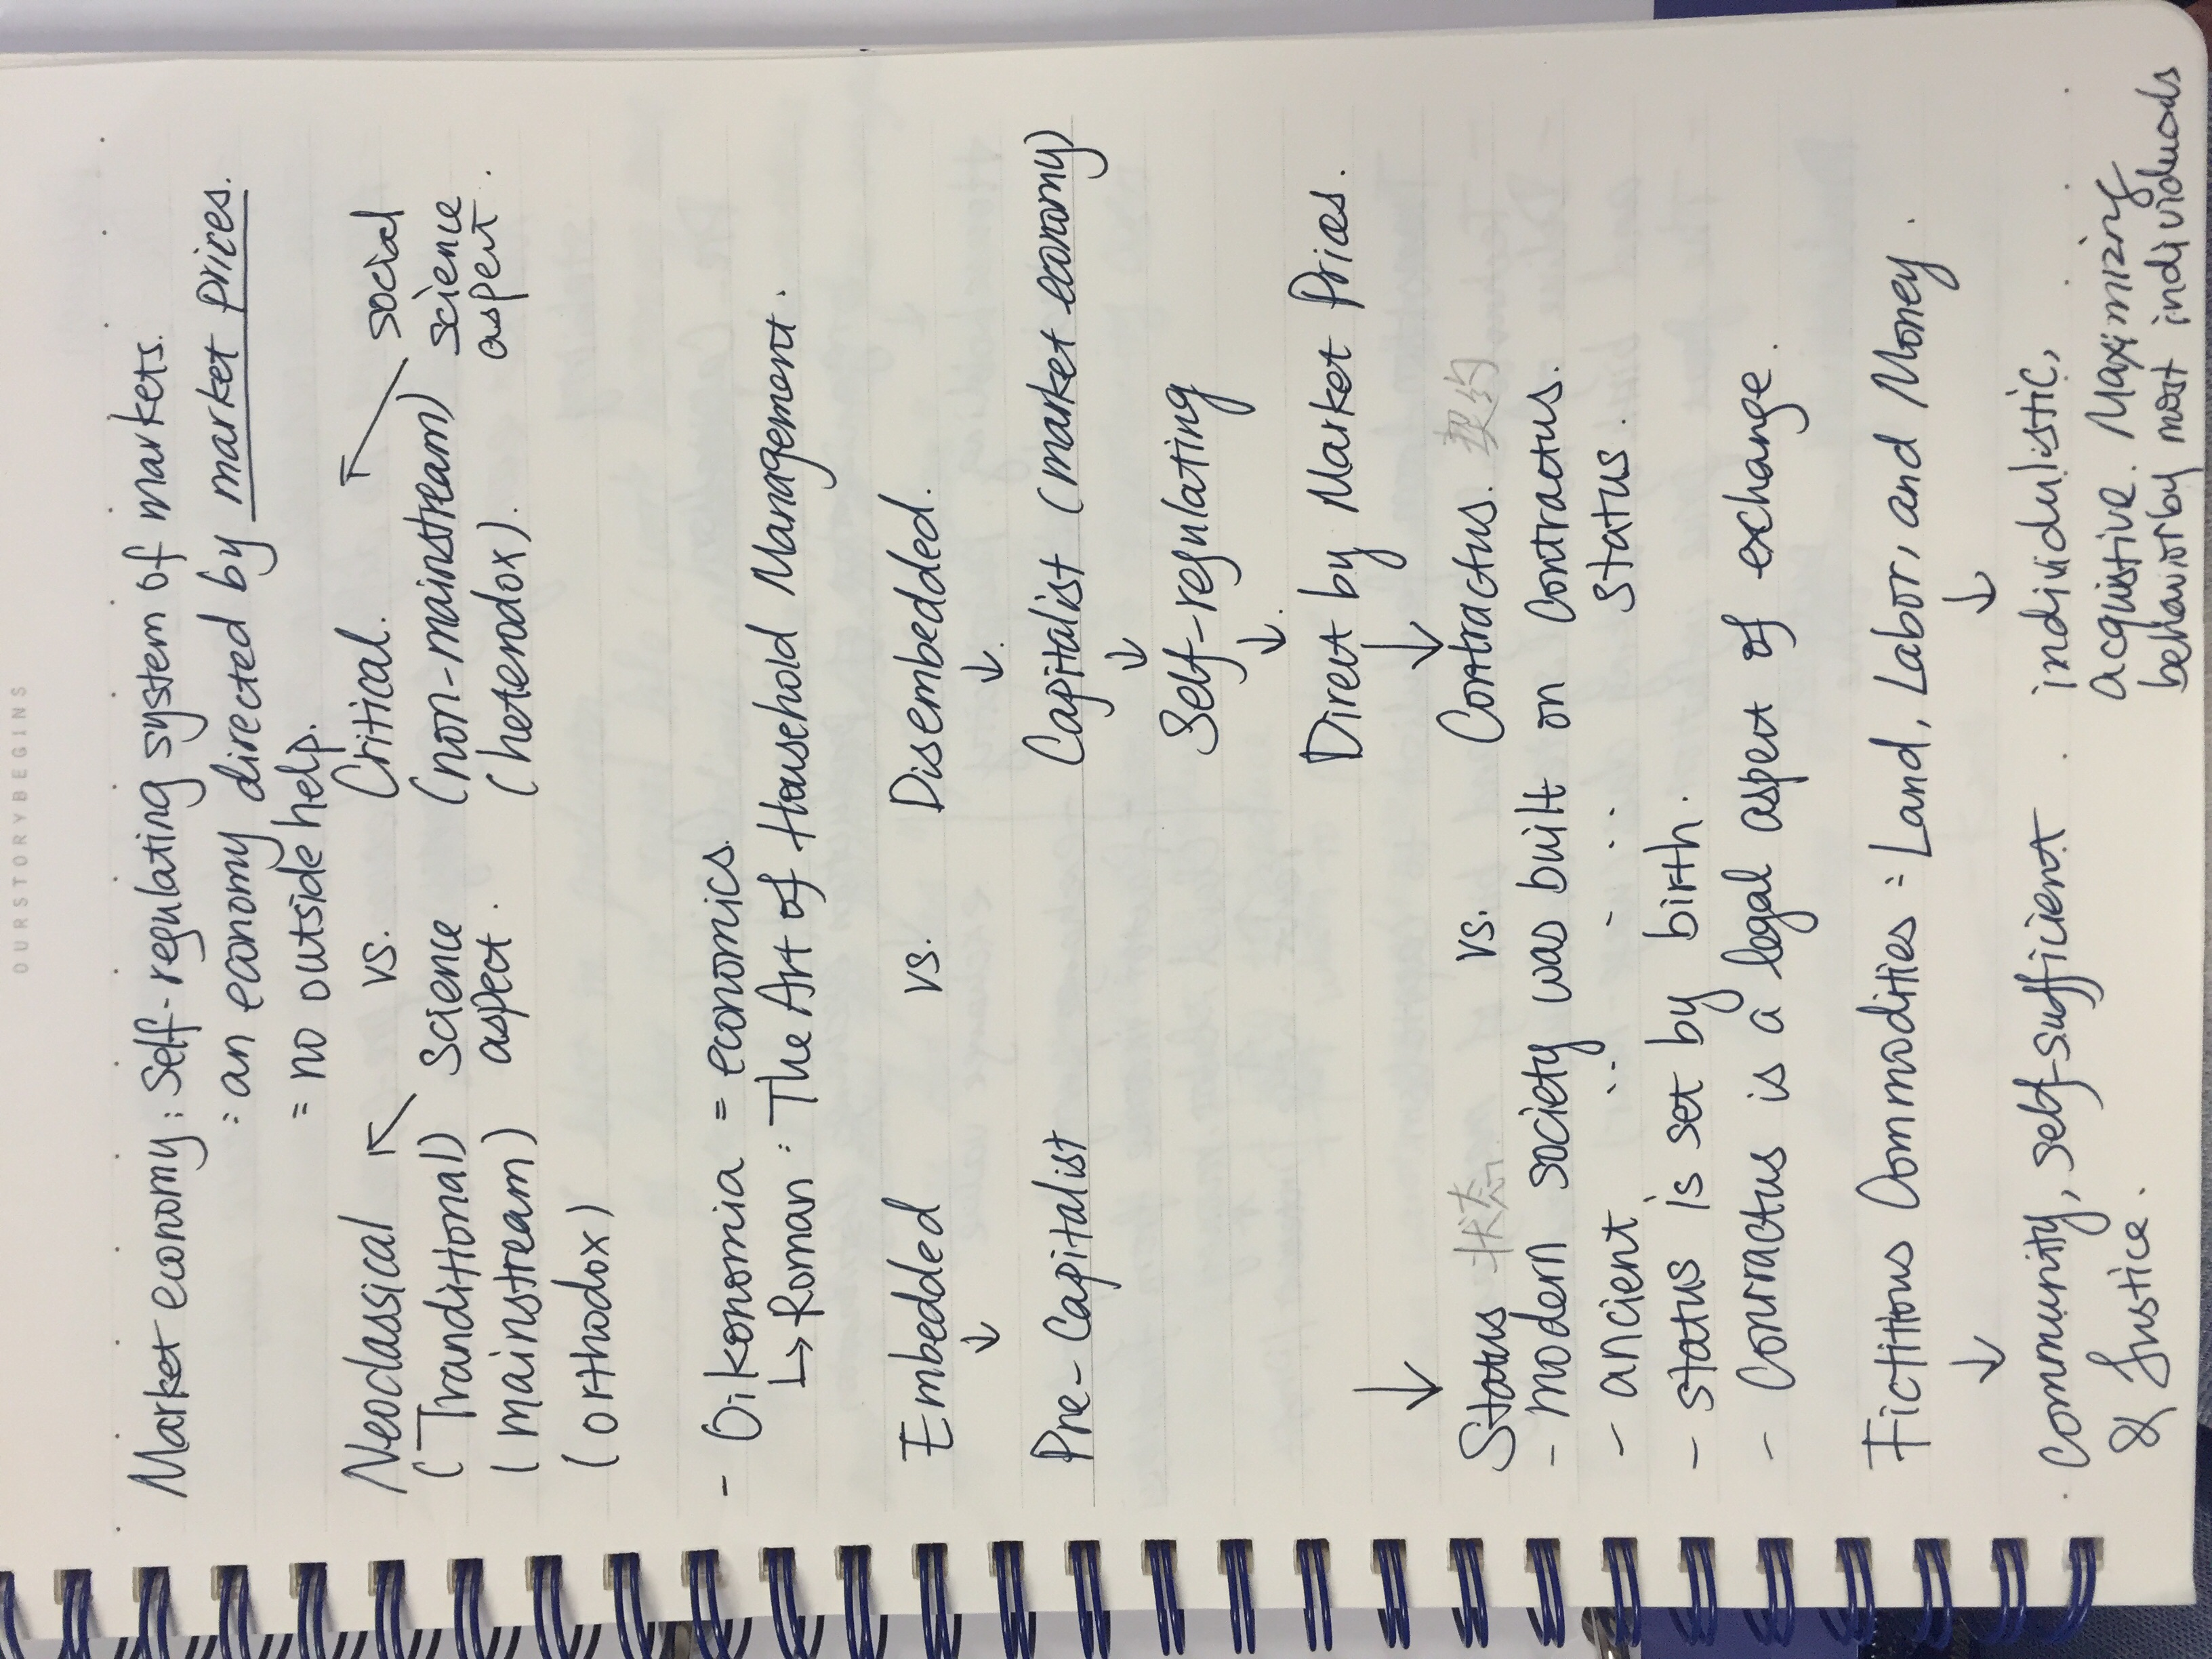 OURSTORYBEGINS
Market economy: Self-regulating system of markets.
: an economy directed by market prices.
= no outside help.
Neoclassical vs. Critical.
(Tranditional) Science aspect. (non-mainstream) social science aspert.
(mainstream) (heterodox).
(orthodox)
- Oikonomia = economics.
↳ Roman : The Art of Household Management.
Embedded vs. Disembedded.
↓ ↓
Pre-Capitalist Capitalist (market economy)
↓
Self-regulating
↓
Direct by Market Prices.
↓ ↓
Status 状态 vs. Contractus. 契约
- modern society was built on Contractus.
- ancient .. - .. status.
- status is set by birth.
- Contractus is a legal aspect of exchange.
Fictitious Commodities = Land, Labor, and Money.
↓ ↓
community, self-sufficient & Justice.
individulistic, acquistive. Maximizing behavior by most individuods